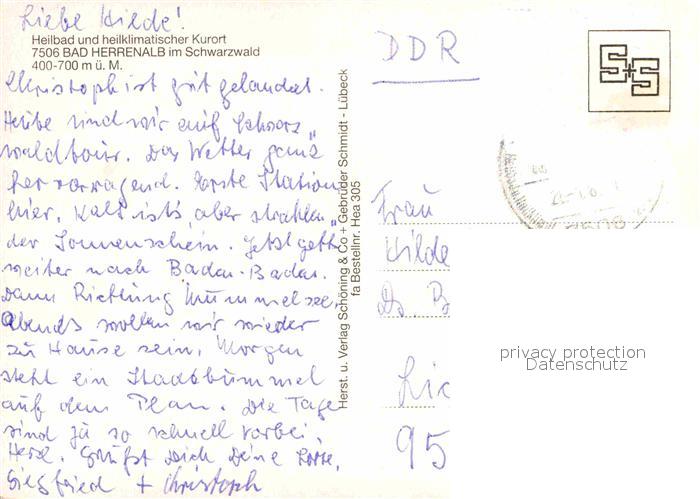 Liebe Hilde!
Heilbad und heilklimatischer Kurort
7506 BAD HERRENALB im Schwarzwald
400-700 m ü. M.
Christoph ist gut gelandet.
Heute sind wir auf Schwarz
waldtour. Das Wetter ganz
hervorragend. Erste Station
hier. Kalt ist's, aber strahlen
der Sonnenschein. Jetzt geht's
weiter nach Baden-Baden.
Dann Richtung Mummelsee.
Abends wollen wir wieder
zu Hause sein. Morgen
steht ein Stadtbummel
auf dem Plan. Die Tage
sind ja so schnell vorbei.
Herzl. Grüßt Dich Deine Lotte,
Siegfried + Christoph
Herst. u. Verlag Schöning & Co + Gebrüder Schmidt - Lübeck
fa Bestellnr. Hea 305
DDR
S+S
Frau
Hilde
95
privacy protection
Datenschutz